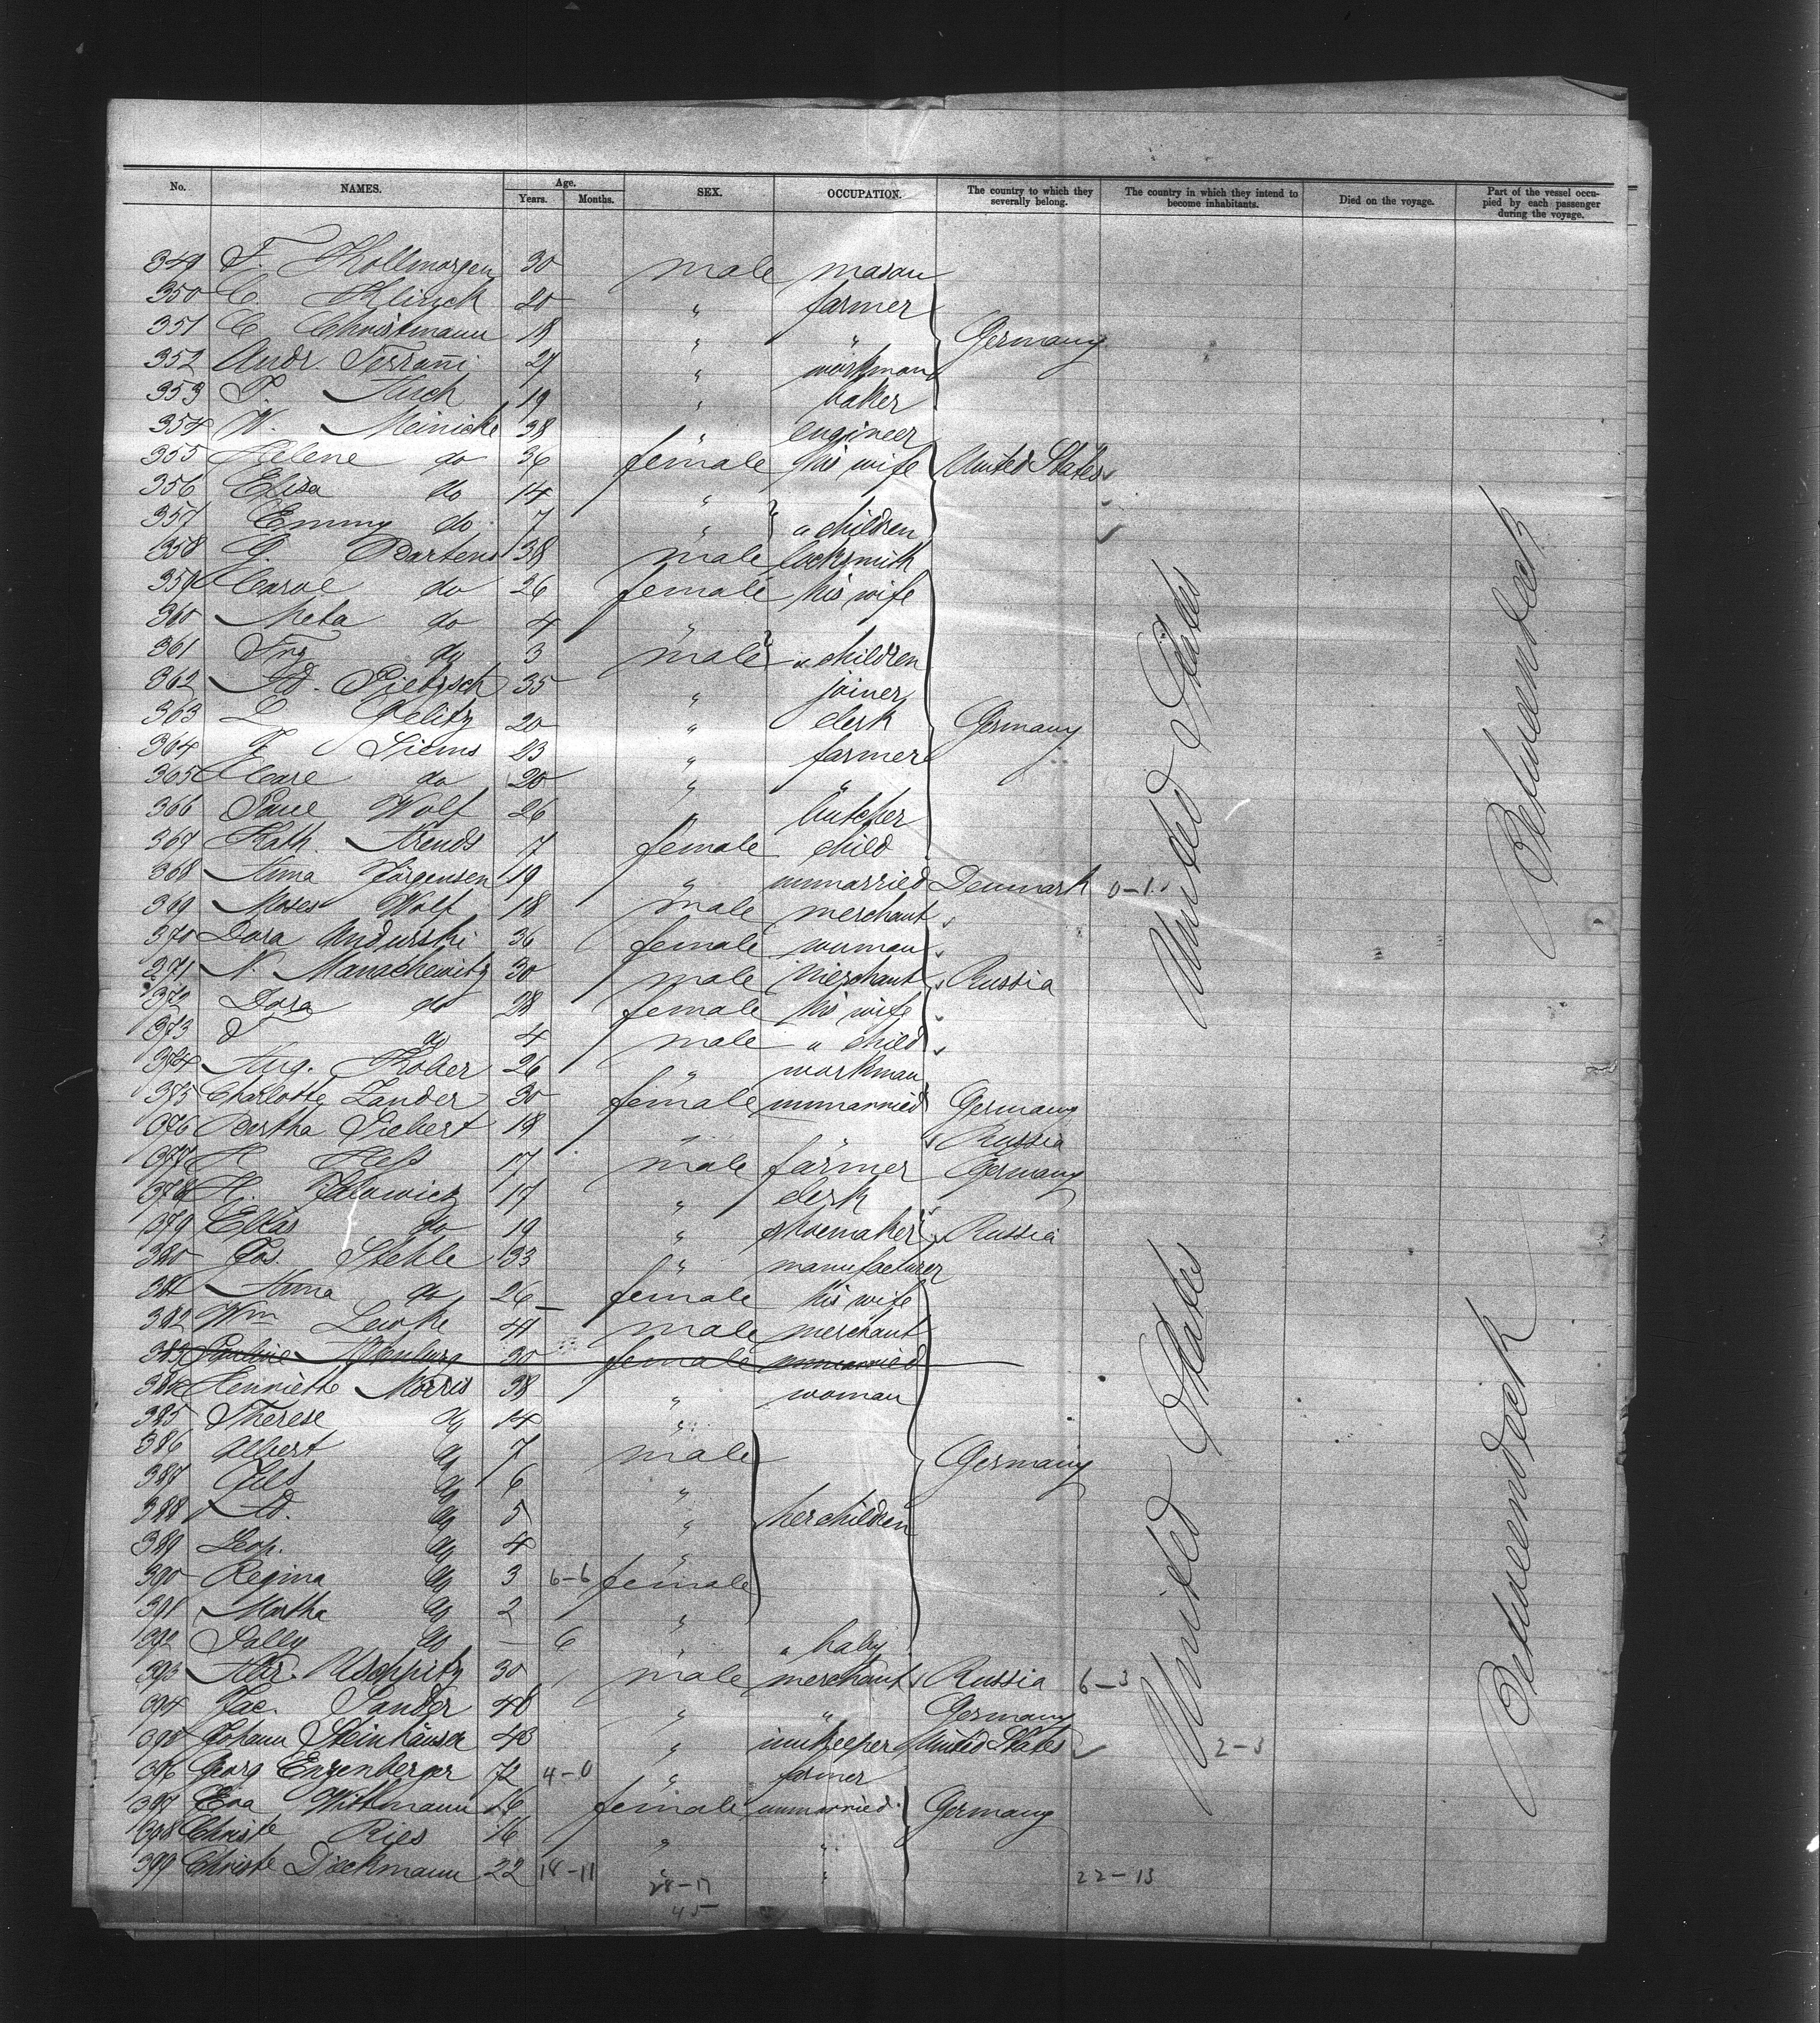 No. NAMES. Age. Years. Months. SEX. OCCUPATION. The country to which they severally belong. The country in which they intend to become inhabitants. Died on the voyage. Part of the vessel occupied by each passenger during the voyage.
349 F. Kollmorgen 30 male mason
350 C Klinck 20 " farmer
351 C Christmann 18 " "
Germany
352 Andr. 27 " workman
353 19 " baker
354 W. Meinicke 38 " engineer
355 Helene do 36 female his wife United States
356 Elisa do 14 "
357 Emmy do 7 " " children
358 G Bartens 38 male locksmith
359 Carol do 26 female his wife
360 Meta do 4 "
361 do 3 male " children
362 Ad. Pietzsch 35 " joiner
363 L 20 " clerk Germany
364 F Siems 23 " farmer
365 Carl do 20 " "
366 Paul Wolf 26 " butcher
367 Kath. Arends 7 female child
368 Anna Jörgensen 19 " unmarried Denmark 0-1
369 Moses Wolf 18 male merchant
370 Dora Andurski 36 female woman
371 N. Manachewitz 30 male merchant Russia
372 Dora do 28 female his wife
373 do 4 male " child
374 Aug. Kober 26 " workman
375 Charlotte Zander 30 female unmarried Germany
376 Bertha Siebert 18 " " Russia
377 H Hess 17 male farmer Germany
378 H. 17 " clerk
379 Elias do 19 " shoemaker Russia
380 Jos. Stehle 33 " manufacturer
381 Anna do 26 female his wife
382 Wm 41 male merchant
383 Pauline 30 female unmarried
384 Henriette Morris 38 " woman
385 Therese do 14 "
386 Albert do 7 male Germany
387 do 6 "
388 Ad. do 5 " her children
389 Leop. do 4 "
390 Regina do 3 6-6 female
391 Martha do 2 "
392 Sally do — 6 " " baby
393 Abr. 30 male merchant Russia 6-3
394 Jac. Sander 48 " " Germany
395 Johann Steinhäuser 43 " innkeeper United States 2-3
396 Georg Enzenberger 72 4-0 " farmer
397 Eva Wittmann 16 female unmarried Germany
398 Christe Ries 16 " "
399 Christe Dieckmann 22 18-11 " " 22-13
28-17
45
United States
United States
Betweendeck
Betweendeck